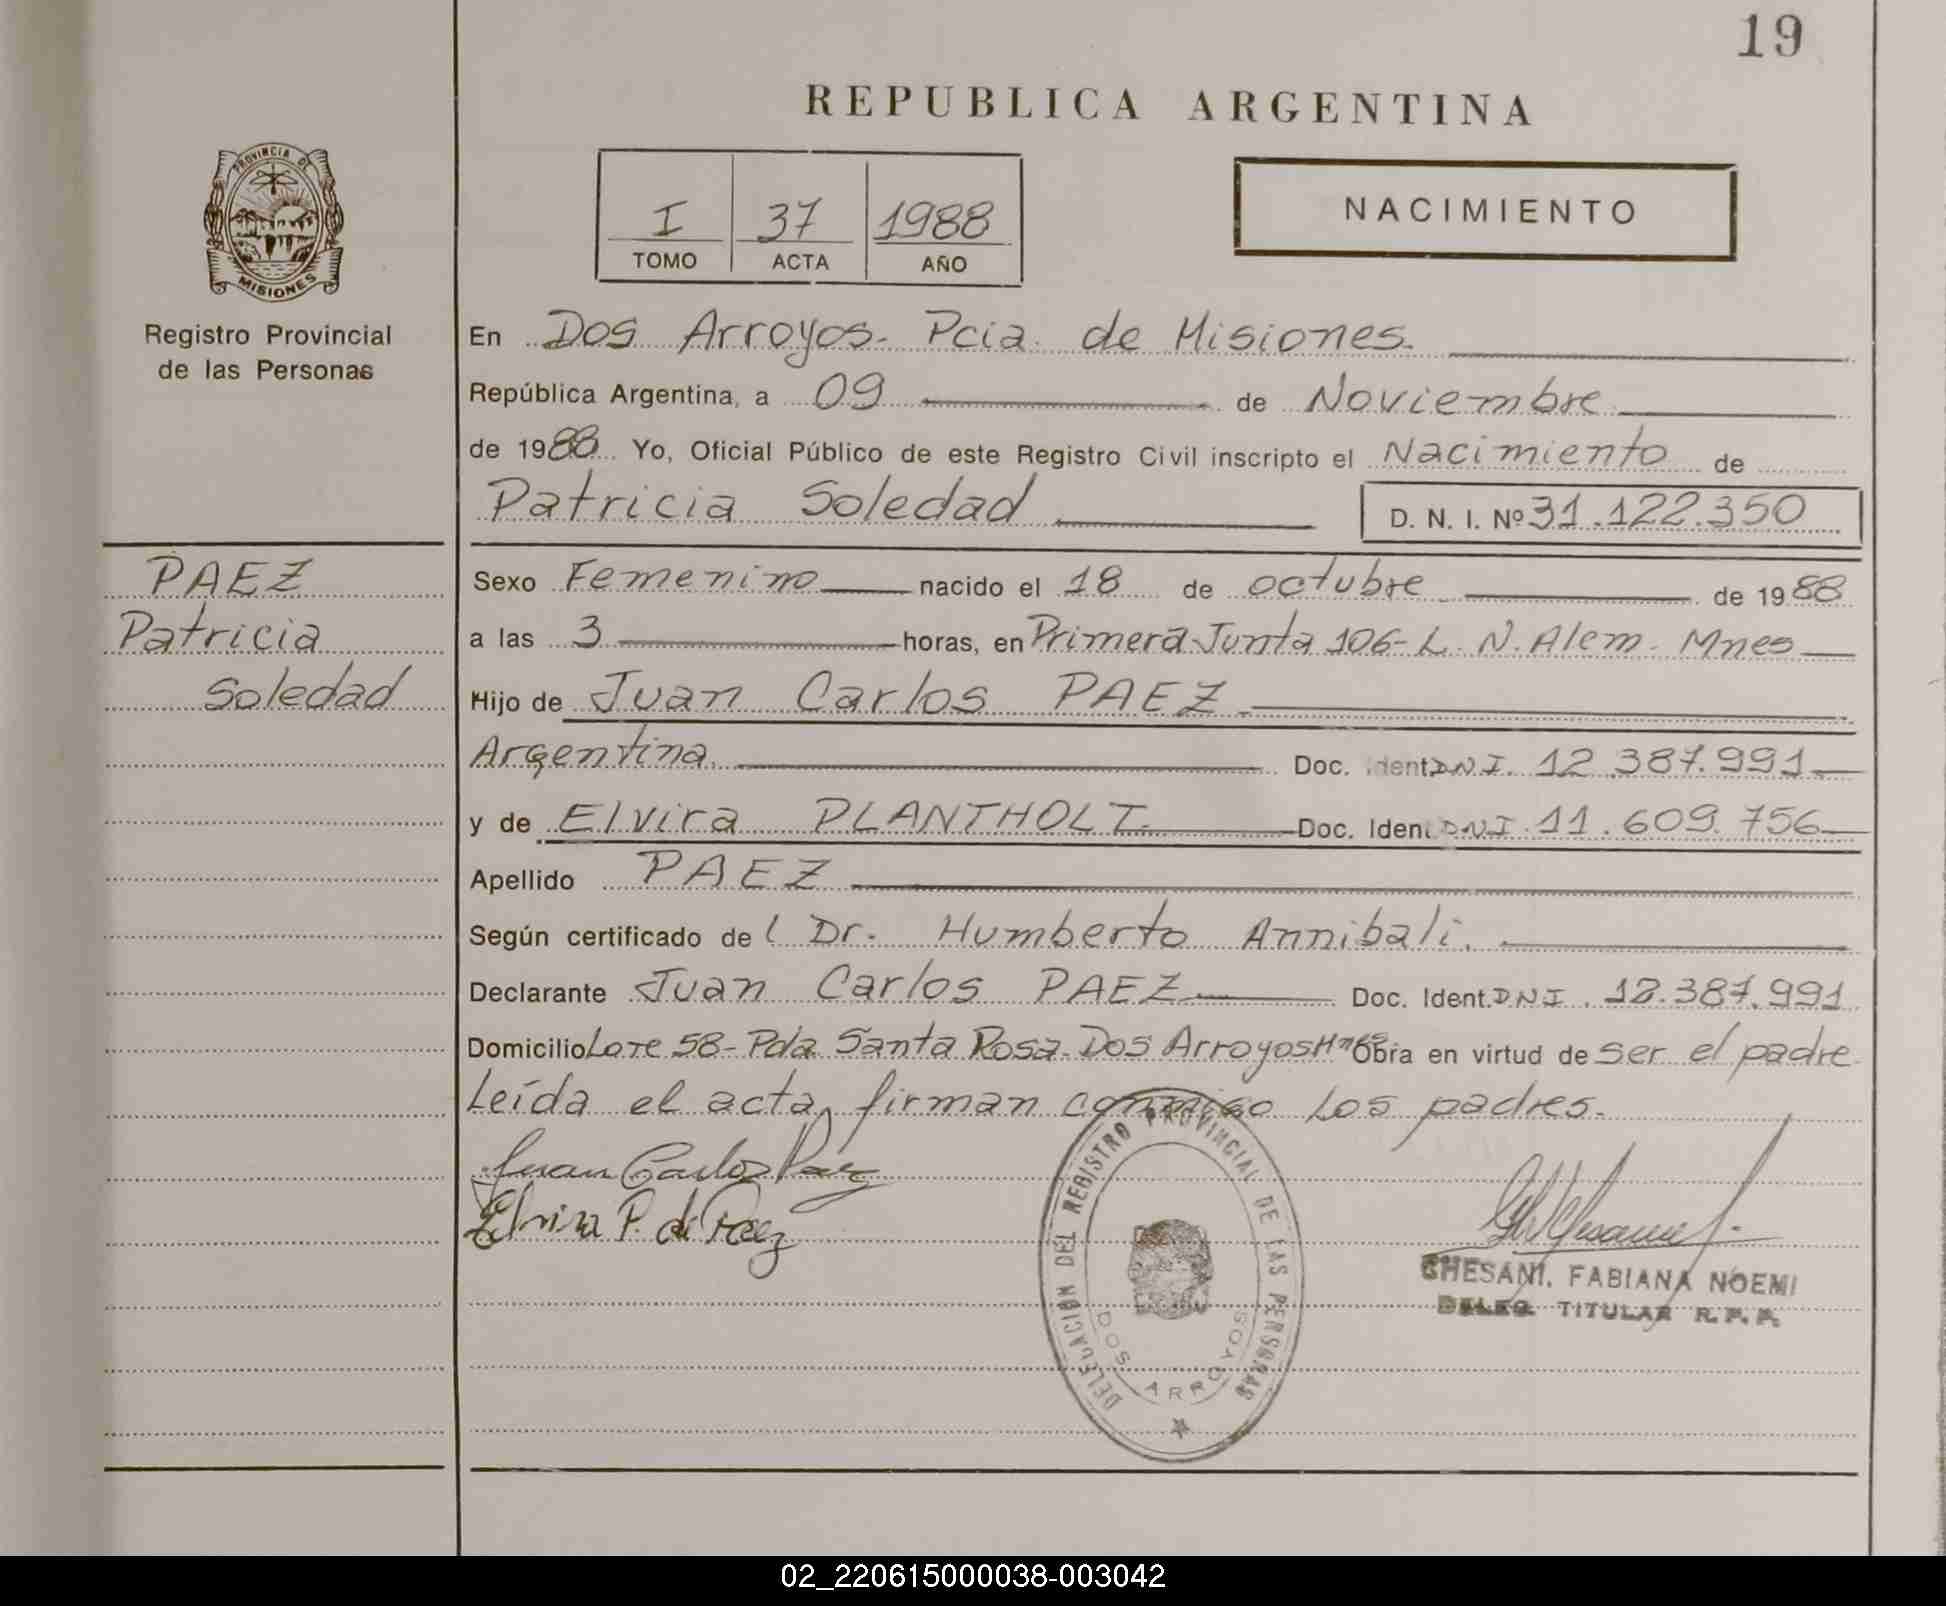 19
REPUBLICA ARGENTINA
PROVINCIA DE
MISIONES
Registro Provincial
de las Personas
I 37 1988
TOMO ACTA AÑO
NACIMIENTO
En Dos Arroyos. Pcia. de Misiones.
República Argentina, a 09 de Noviembre
de 1988 Yo, Oficial Público de este Registro Civil inscripto el Nacimiento de
Patricia Soledad D. N. I. Nº 31.122.350
PAEZ
Patricia
Soledad
Sexo Femenino nacido el 18 de octubre de 1988
a las 3 horas, en Primera Junta 106- L. N. Alem. Mnes
Hijo de Juan Carlos PAEZ
Argentina Doc. Ident. DNI. 12.387.991
y de Elvira PLANTHOLT. Doc. Iden. DNI. 11.609.756
Apellido PAEZ
Según certificado del Dr. Humberto Annibali.
Declarante Juan Carlos PAEZ Doc. Ident. DNI. 12.387.991
Domicilio Lote 58- Pda. Santa Rosa. Dos Arroyos Mnes Obra en virtud de ser el padre
Leída el acta, firman conmigo los padres.
Juan Carlos Paez
Elvira P. de Paez
DELEGACIÓN DEL REGISTRO PROVINCIAL DE LAS PERSONAS
DOS ARROYOS
GHESANI, FABIANA NOEMI
DELEG. TITULAR R. P. P.
02_220615000038-003042